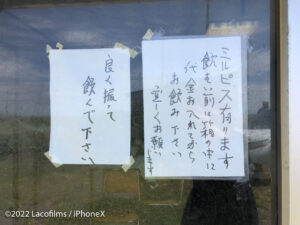 ミルピス有ります
飲む前は箱の中に
代金お入れてから
お飲み下さい
宜しくお願い
します
良く振って
飲んで下さい
©2022 Lacofilms / iPhoneX